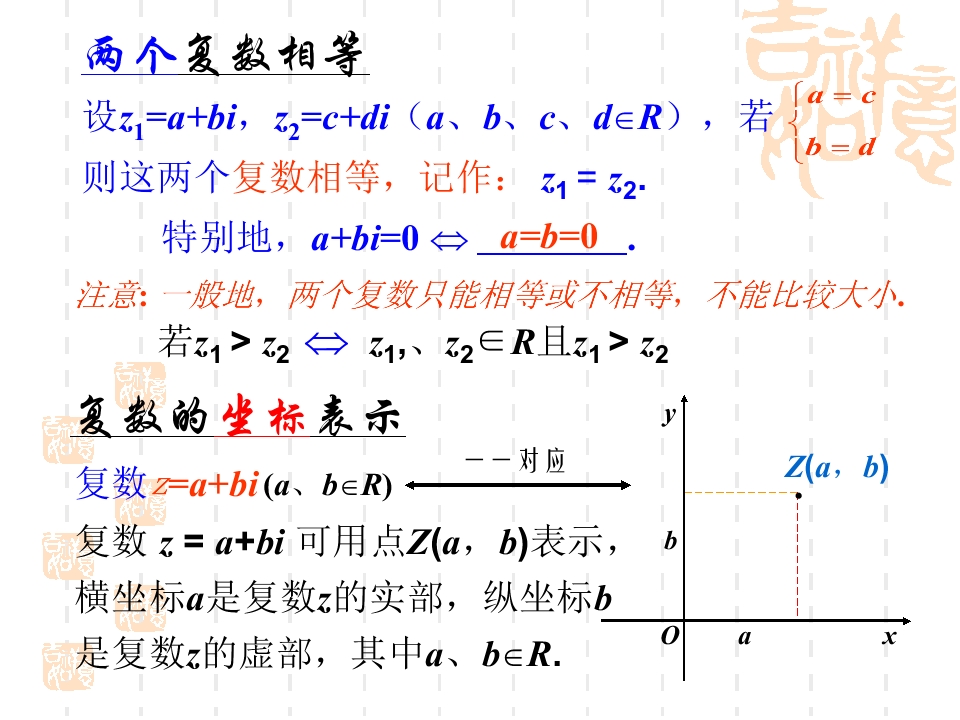 两个复数相等
设z₁=a+bi，z₂=c+di（a、b、c、d∈R），若 { a = c
b = d
则这两个复数相等，记作： z₁ = z₂.
特别地，a+bi=0 ⇔ a=b=0 .
注意: 一般地，两个复数只能相等或不相等，不能比较大小.
若z₁ > z₂ ⇔ z₁,、z₂∈R且z₁ > z₂
复数的坐标表示
复数 z=a+bi (a、b∈R) 一一对应
复数 z = a+bi 可用点Z(a，b)表示，
横坐标a是复数z的实部，纵坐标b
是复数z的虚部，其中a、b∈R.
y
Z(a，b)
b
O a x
吉祥如意